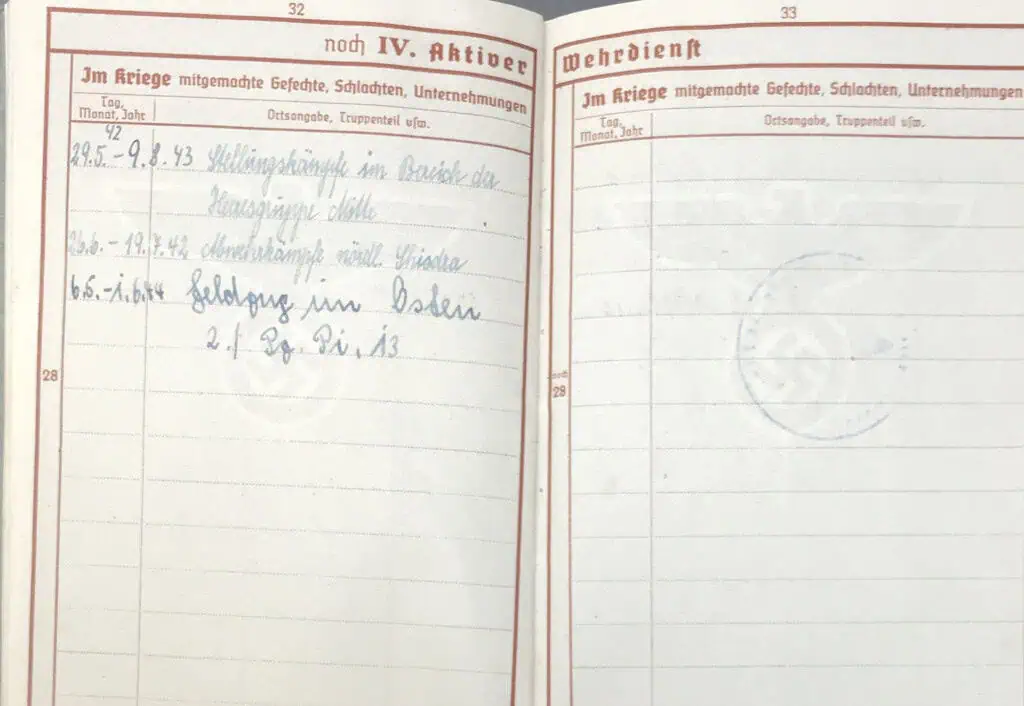 32
noch IV. Aktiver
Im Kriege mitgemachte Gefechte, Schlachten, Unternehmungen
Tag, Monat, Jahr
Ortsangabe, Truppenteil usw.
42
29.5.-9.8.43 Stellungskämpfe im Bereich der
Heeresgruppe Mitte
26.6.-19.7.42 Abwehrkämpfe nördl. Shisdra
6.5.-1.6.44 Feldzug im Osten
2./ Pz. Pi. 13
28
33
Wehrdienst
Im Kriege mitgemachte Gefechte, Schlachten, Unternehmungen
Tag, Monat, Jahr
Ortsangabe, Truppenteil usw.
noch
28